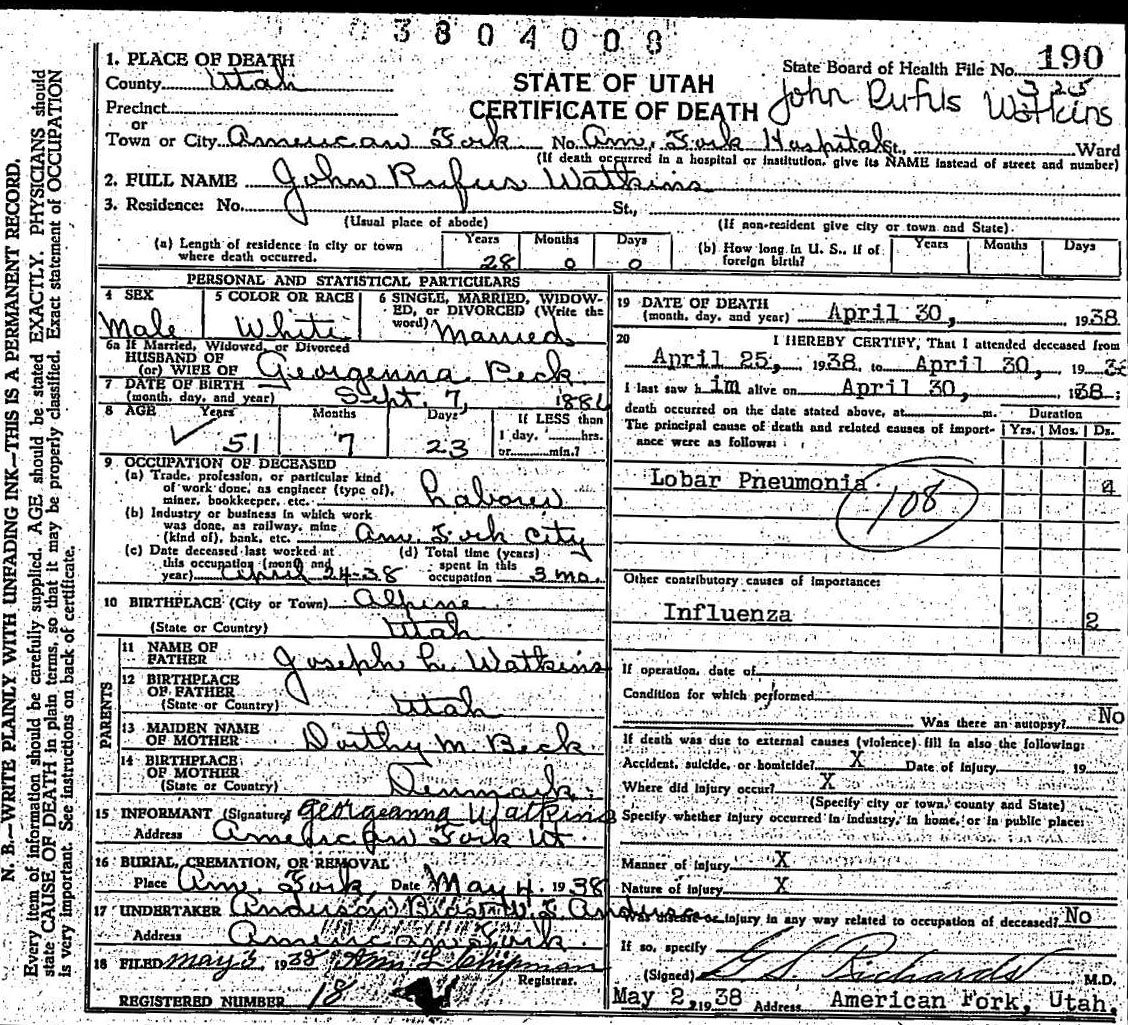 3804008
190
1. PLACE OF DEATH
County Utah
STATE OF UTAH
State Board of Health File No. 190
325
Precinct
CERTIFICATE OF DEATH
John Rufus Watkins
or
Town or City American Fork No. Am. Fork Hospital St., Ward
(If death occurred in a hospital or institution, give its NAME instead of street and number)
2. FULL NAME John Rufus Watkins
3. Residence: No. St.,
(Usual place of abode) (If non-resident give city or town and State)
(a) Length of residence in city or town where death occurred. Years 28 Months 0 Days 0
(b) How long in U. S., if of foreign birth? Years Months Days
PERSONAL AND STATISTICAL PARTICULARS
4 SEX Male
5 COLOR OR RACE White
6 SINGLE, MARRIED, WIDOW-
ED, or DIVORCED (Write the
word) Married
6a If Married, Widowed, or Divorced
HUSBAND OF
(or) WIFE OF Georgenna Peck
7 DATE OF BIRTH
(month, day, and year) Sept. 7, 1886
8 AGE Years 51 Months 7 Days 23
If LESS than
1 day, hrs.
or min.?
9 OCCUPATION OF DECEASED
(a) Trade, profession, or particular kind
of work done, as engineer (type of),
miner, bookkeeper, etc. Laborer
(b) Industry or business in which work
was done, as railway, mine
(kind of), bank, etc. Am. Fork City
(c) Date deceased last worked at
this occupation (month and
year) April 24-38
(d) Total time (years)
spent in this
occupation 3 mo.
10 BIRTHPLACE (City or Town) Alpine
(State or Country) Utah
PARENTS
11 NAME OF
FATHER Joseph L. Watkins
12 BIRTHPLACE
OF FATHER
(State or Country) Utah
13 MAIDEN NAME
OF MOTHER Dorthy M Beck
14 BIRTHPLACE
OF MOTHER
(State or Country) Denmark
15 INFORMANT (Signature) Georgeanna Watkins
Address American Fork Ut.
16 BURIAL, CREMATION, OR REMOVAL
Place Am. Fork Date May 4, 1938
17 UNDERTAKER Anderson
Address American Fork.
18 FILED May 3, 1938 Chipman
Registrar.
REGISTERED NUMBER 18
19 DATE OF DEATH
(month, day, and year) April 30, 1938
20 I HEREBY CERTIFY, That I attended deceased from
April 25, 1938 to April 30, 1938
I last saw him alive on April 30, 1938;
death occurred on the date stated above, at m.
The principal cause of death and related causes of import-
ance were as follows:
Duration
Yrs. Mos. Ds.
Lobar Pneumonia 4
108
Other contributory causes of importance:
Influenza 2
If operation, date of
Condition for which performed
Was there an autopsy? No
If death was due to external causes (violence) fill in also the following:
Accident, suicide, or homicide? X Date of injury 19
Where did injury occur? X
(Specify city or town, county and State)
Specify whether injury occurred in industry, in home, or in public place:
Manner of injury X
Nature of injury X
Was disease or injury in any way related to occupation of deceased? No
If so, specify
(Signed) G S Richards M.D.
May 2, 1938 Address American Fork, Utah.
N. B.—WRITE PLAINLY WITH UNFADING INK—THIS IS A PERMANENT RECORD.
Every item of information should be carefully supplied. AGE should be stated EXACTLY. PHYSICIANS should
state CAUSE OF DEATH in plain terms, so that it may be properly classified. Exact statement of OCCUPATION
is very important. See instructions on back of certificate.